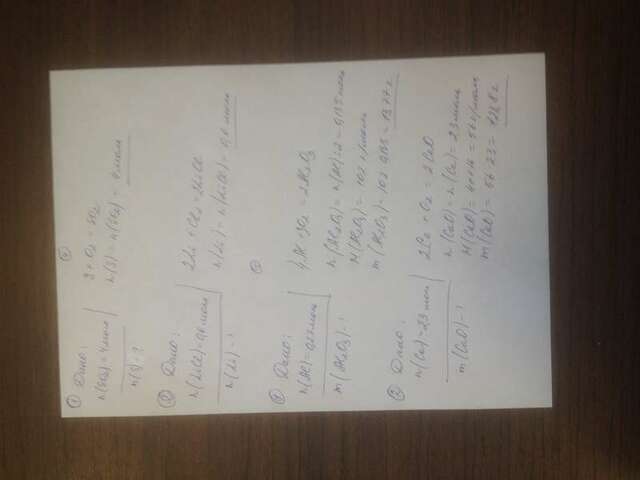 ① Дано:
n(SO₂)=4 моль
n(S)-?
S + O₂ = SO₂
n(S) = n(SO₂) = 4 моль
② Дано:
n(LiCl)=0,6 моль
n(Li)-?
2Li + Cl₂ = 2LiCl
n(Li) = n(LiCl) = 0,6 моль
① Дано:
n(Al)=0,27 моль
m(Al₂O₃)-?
4Al + 3O₂ = 2Al₂O₃
n(Al₂O₃) = n(Al):2 = 0,135 моль
M(Al₂O₃) = 102 г/моль
m(Al₂O₃) = 102·0,135 = 13,77 г
② Дано:
n(Ca)=2,3 моль
m(CaO)-?
2Ca + O₂ = 2CaO
n(CaO) = n(Ca) = 2,3 моль
M(CaO) = 40+16 = 56 г/моль
m(CaO) = 56·2,3 = 128,8 г